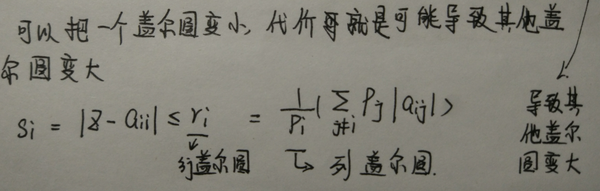 可以把一个盖尔圆变小，代价就是可能导致其他盖
尔圆变大
Si = |z - aii| ≤ ri = 1/Pi ( ∑j≠i Pj |aij| )
行盖尔圆 ↳ 列盖尔圆.
导致其
他盖尔
圆变大